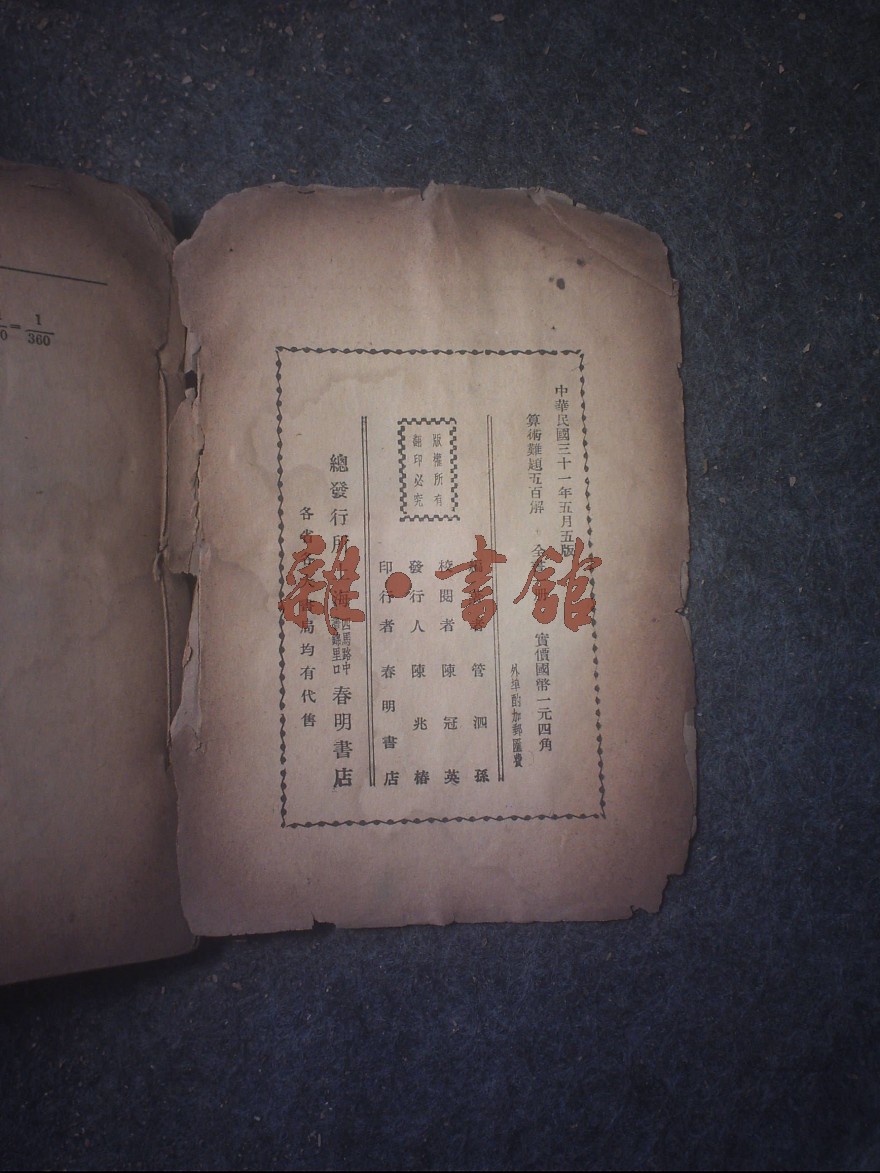 中華民國三十一年五月五版
算術難題五百解 全書 冊 實價國幣一元四角
外埠酌加郵匯費
者 管泗孫
校閱者 陳冠英
發行人 陳兆椿
印行者 春明書店
版權所有
翻印必究
總發行所 上海 四馬路中 里口 春明書店
各省 局均有代售
雜·書館
1/360